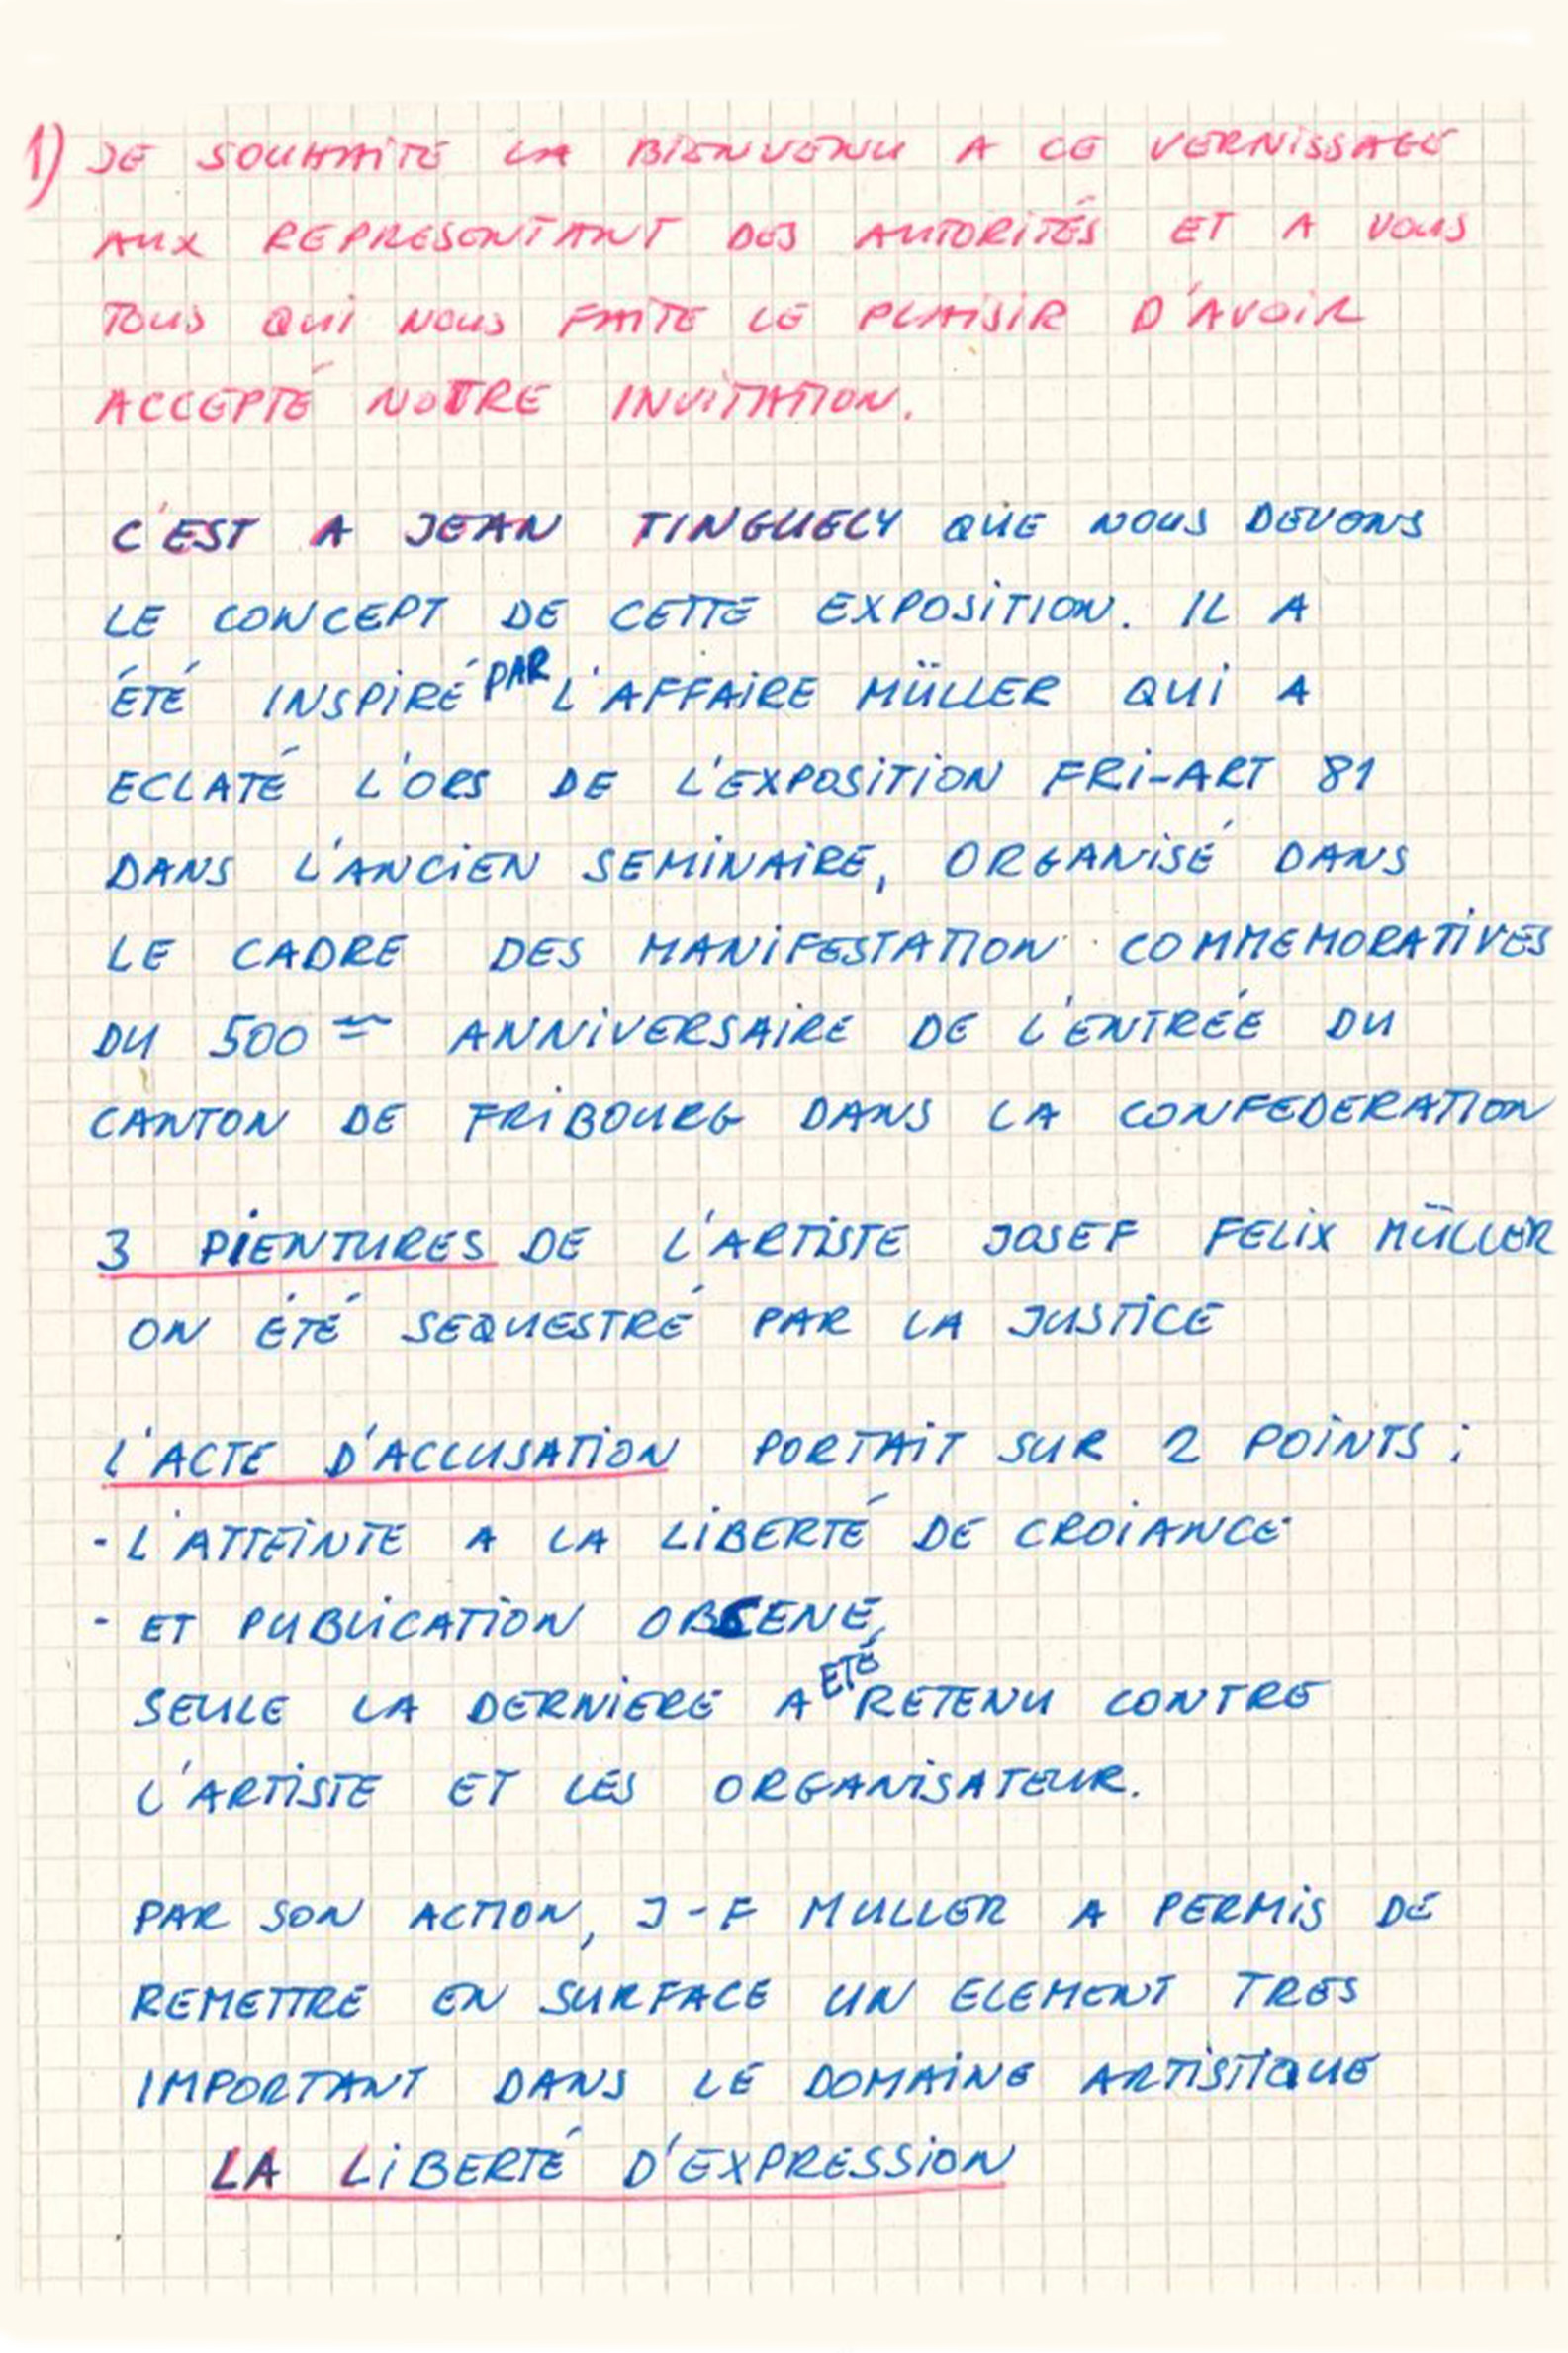 1) JE SOUHAITE LA BIENVENU A CE VERNISSAGE
AUX REPRESENTANT DES AUTORITÉS ET A VOUS
TOUS QUI NOUS FAITE LE PLAISIR D'AVOIR
ACCEPTÉ NOTRE INVITATION.
C'EST A JEAN TINGUELY QUE NOUS DEVONS
LE CONCEPT DE CETTE EXPOSITION. IL A
ÉTÉ INSPIRÉ PAR L'AFFAIRE MÜLLER QUI A
ECLATÉ L'ORS DE L'EXPOSITION FRI-ART 81
DANS L'ANCIEN SEMINAIRE, ORGANISÉ DANS
LE CADRE DES MANIFESTATION COMMEMORATIVES
DU 500 ANNIVERSAIRE DE L'ENTRÉE DU
CANTON DE FRIBOURG DANS LA CONFEDERATION
3 PIENTURES DE L'ARTISTE JOSEF FELIX MÜLLER
ON ÉTÉ SEQUESTRÉ PAR LA JUSTICE
L'ACTE D'ACCUSATION PORTAIT SUR 2 POINTS :
- L'ATTEINTE A LA LIBERTÉ DE CROIANCE
- ET PUBLICATION OBSCENE,
SEULE LA DERNIERE A ETÉ RETENU CONTRE
L'ARTISTE ET LES ORGANISATEUR.
PAR SON ACTION, J-F MULLER A PERMIS DE
REMETTRE EN SURFACE UN ELEMENT TRES
IMPORTANT DANS LE DOMAINE ARTISITIQUE
LA LIBERTÉ D'EXPRESSION